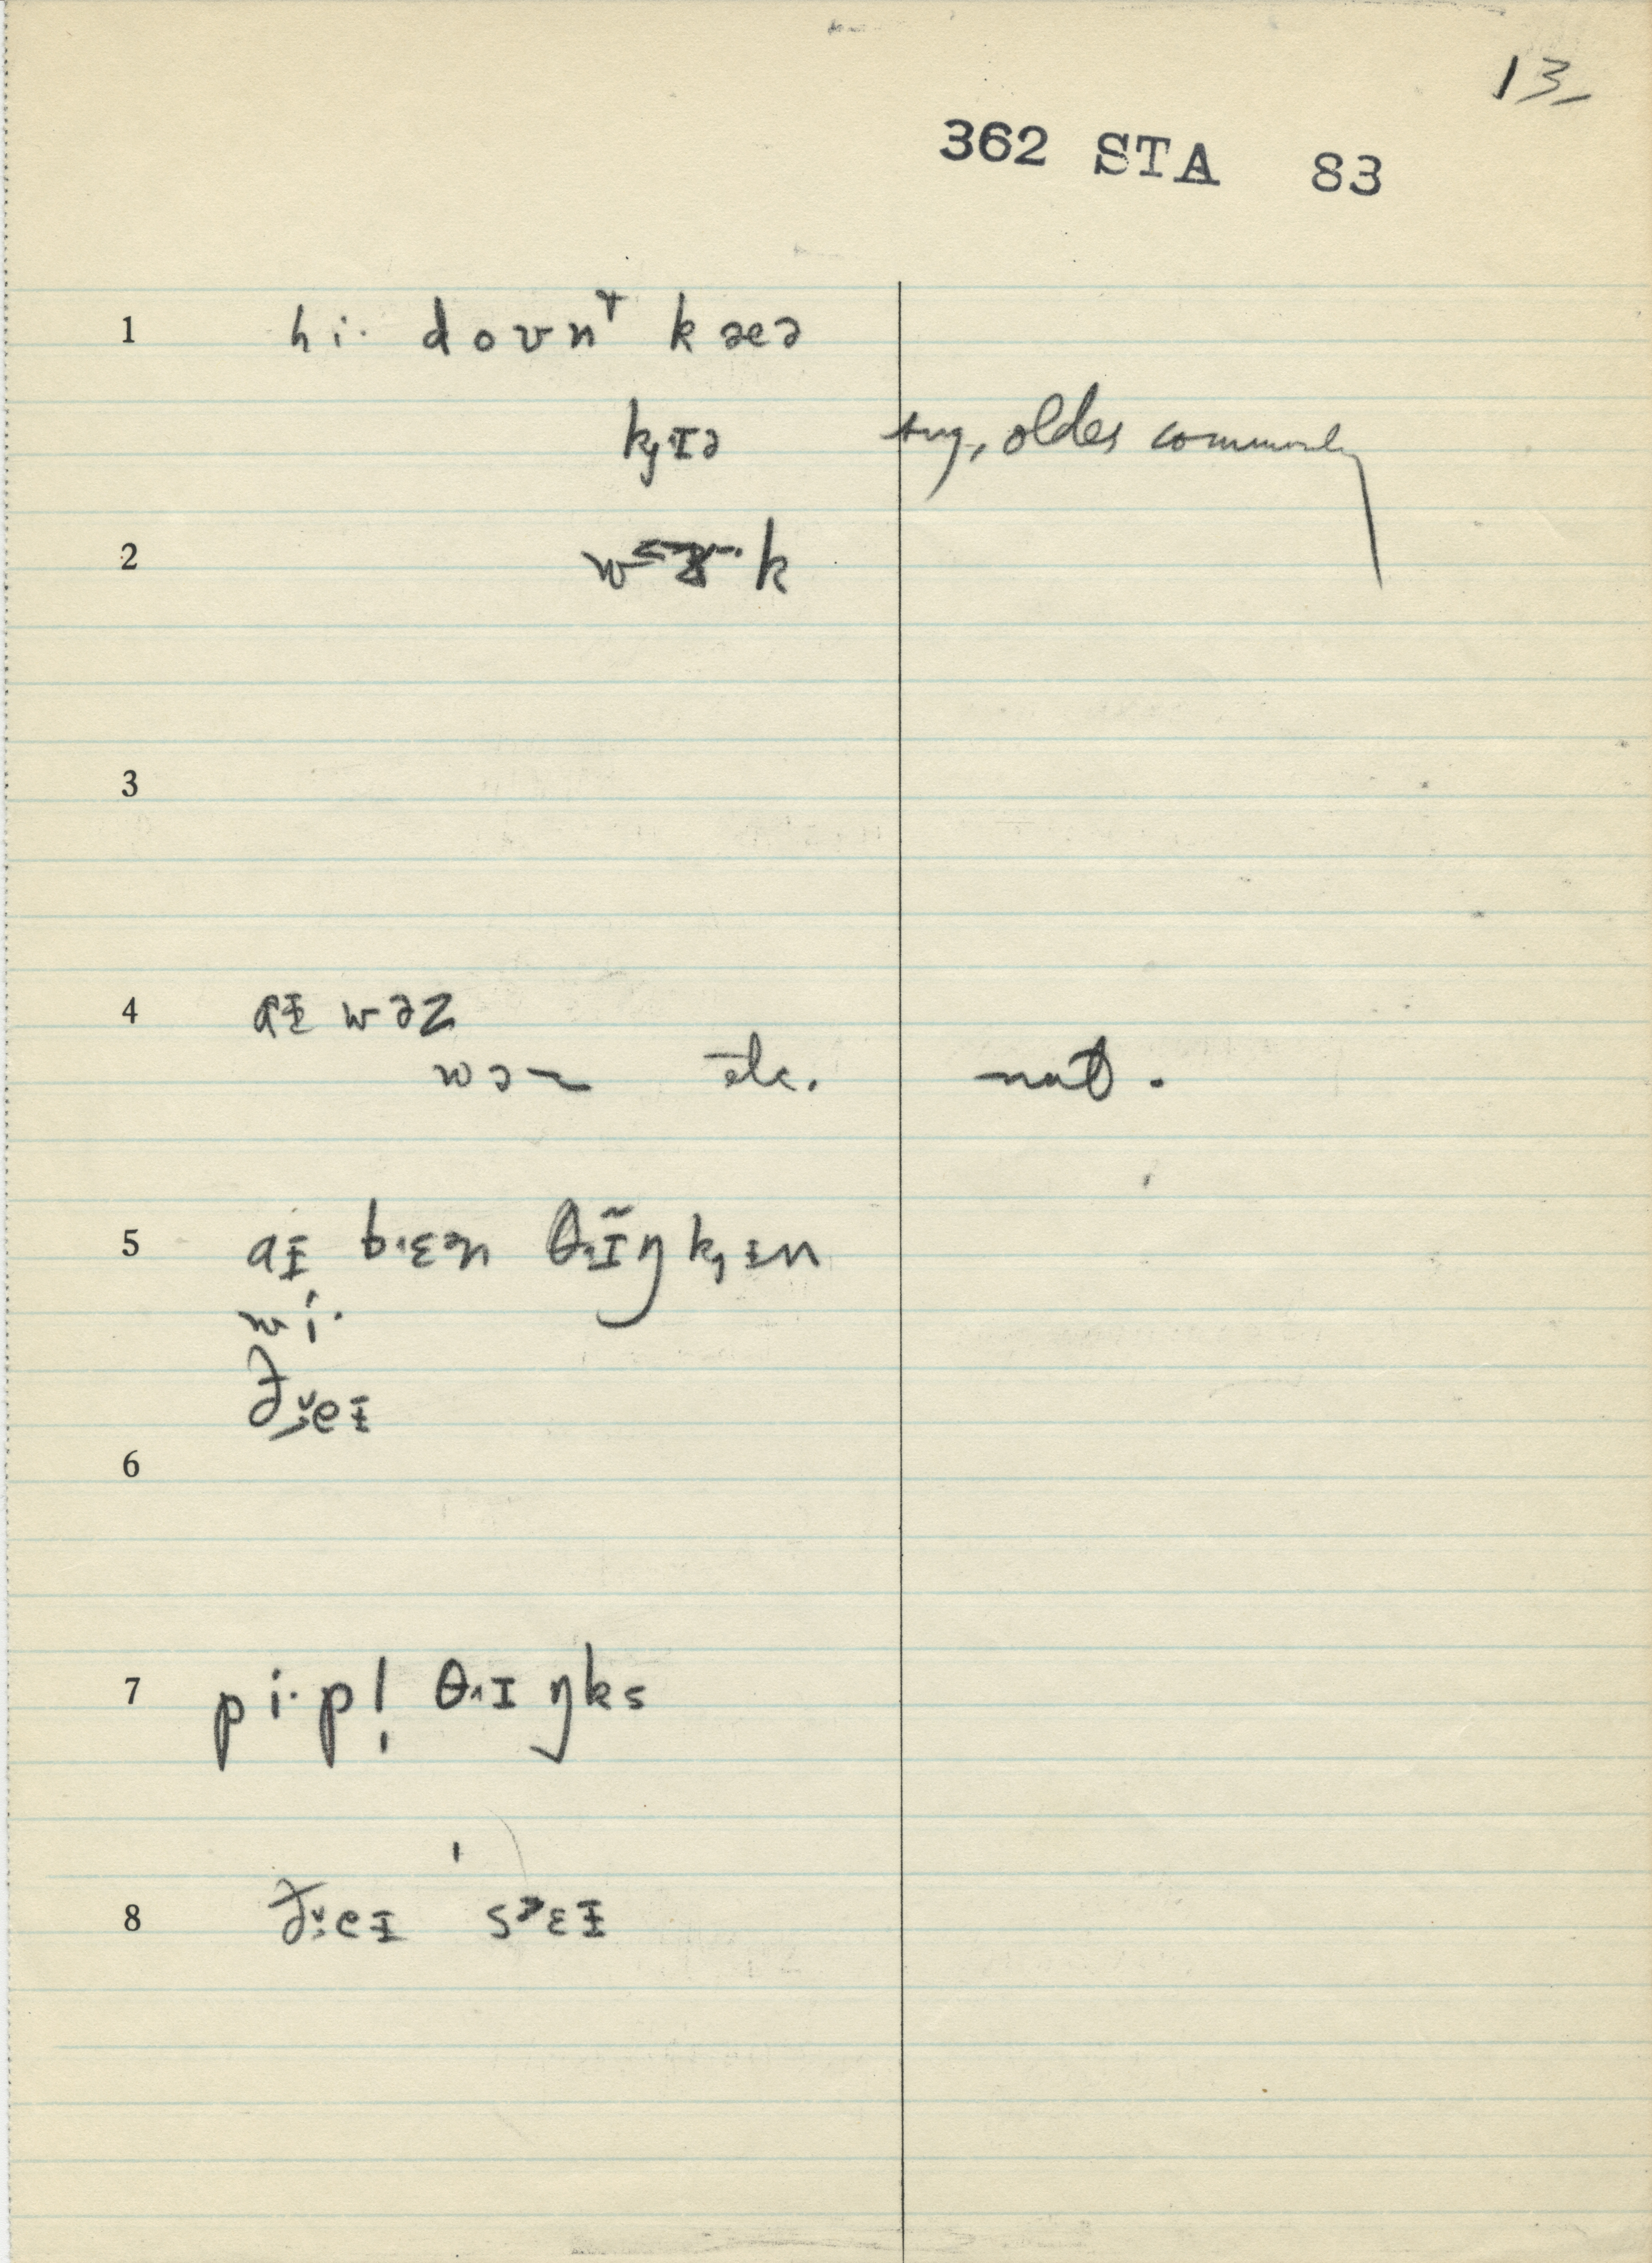 13
362 STA 83
1 hi· doʊnᵗ kæə
kɪə sug, older commonly
2 k
3
4 aɪ wəz
wə etc. nat.
5 aɪ bɪɛən θɪ̃ŋkɪn
wi·
ðeɪ
6
7 pi·pl̩ θɪŋks
8 ðeɪ sɛɪ